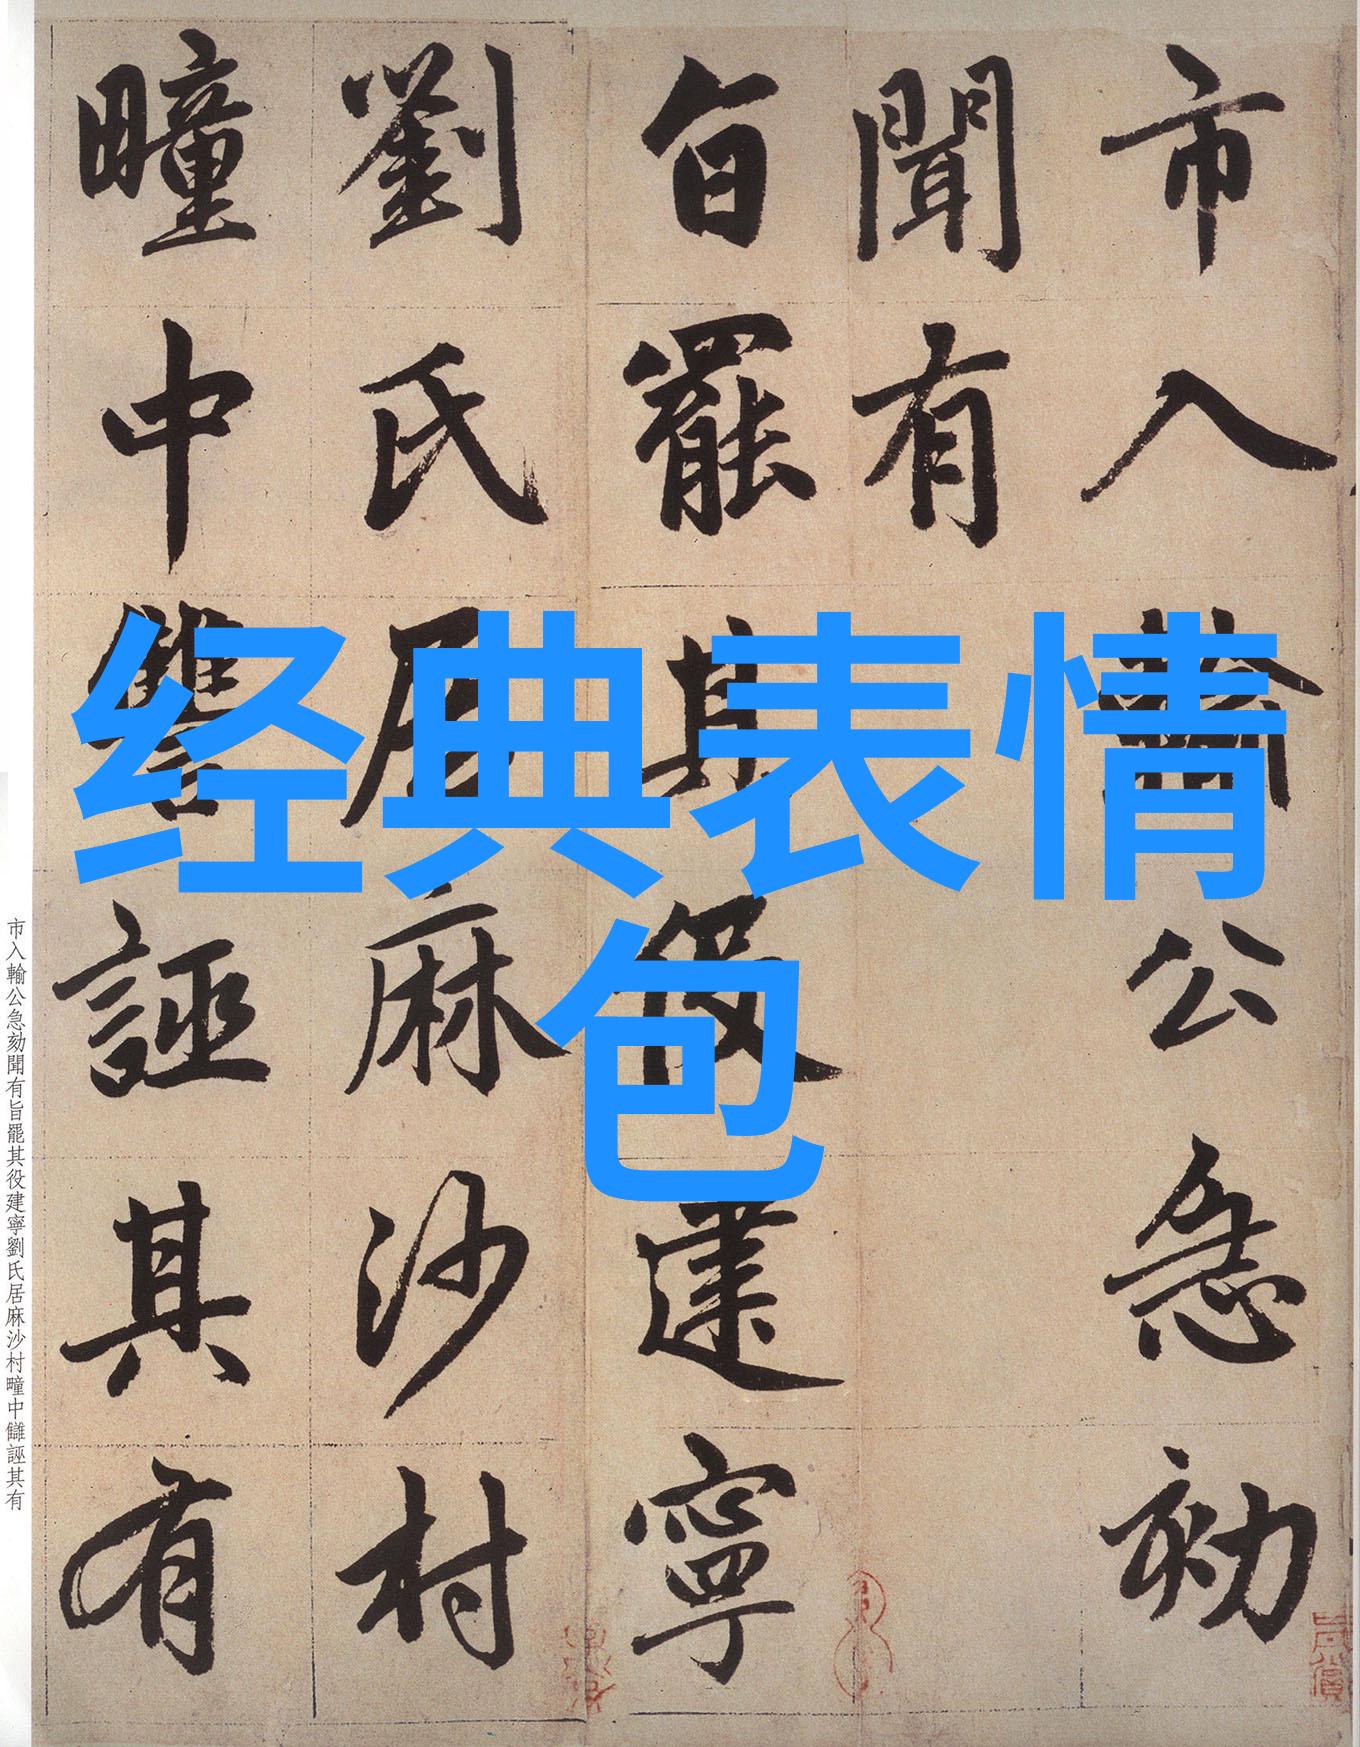 市入輸公急劾
聞有
旨罷其役建寧
劉氏居麻沙村
疃中讎誣其有
经典表情
包
市入輸公急劾聞有旨罷其役建寧劉氏居麻沙村疃中讎誣其有